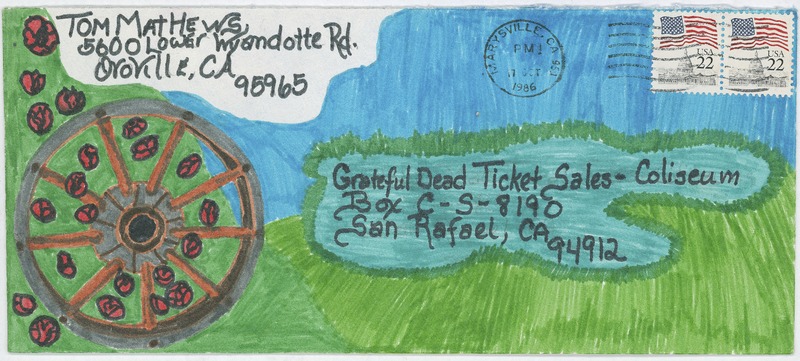 Tom Mathews
5600 Lower Wyandotte Rd.
Oroville, CA
95965
MARYSVILLE, CA
PM
OCT
1986
USA
22
USA
22
Grateful Dead Ticket Sales - Coliseum
Box C-S-8190
San Rafael, CA
94912